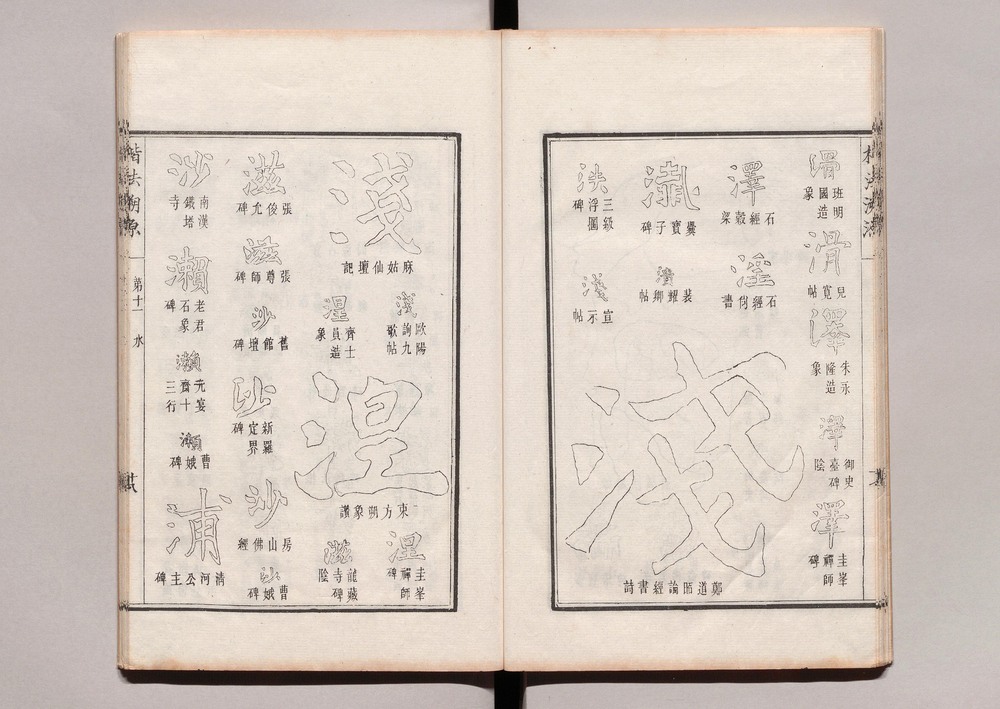 滑
班明
國造
象
滑
兒寬帖
澤
朱永
隆造
象
澤
御史
臺碑
陰
澤
圭峯
禪師
碑
澤
石經穀梁
淫
石經尚書
爨寶子碑
裴耀卿帖
泆
三級
浮圖
碑
淺
宣示帖
淺
鄭道昭論經書詩
淺
麻姑仙壇記
淺
歐陽
詢九
歌帖
湼
齊士
員造
象
湼
東方朔象讚
湼
圭峯
禪師
碑
滋
龍藏
寺碑
陰
滋
張俊允碑
滋
張尊師碑
沙
舊館壇碑
沙
新羅
定界
碑
沙
房山佛經
沙
曹娥碑
沙
南漢
鐵塔
寺
瀨
老君
石象
碑
瀨
元宴
齊十
三行
瀨
曹娥碑
浦
清河公主碑
楷法溯源
第十一 水